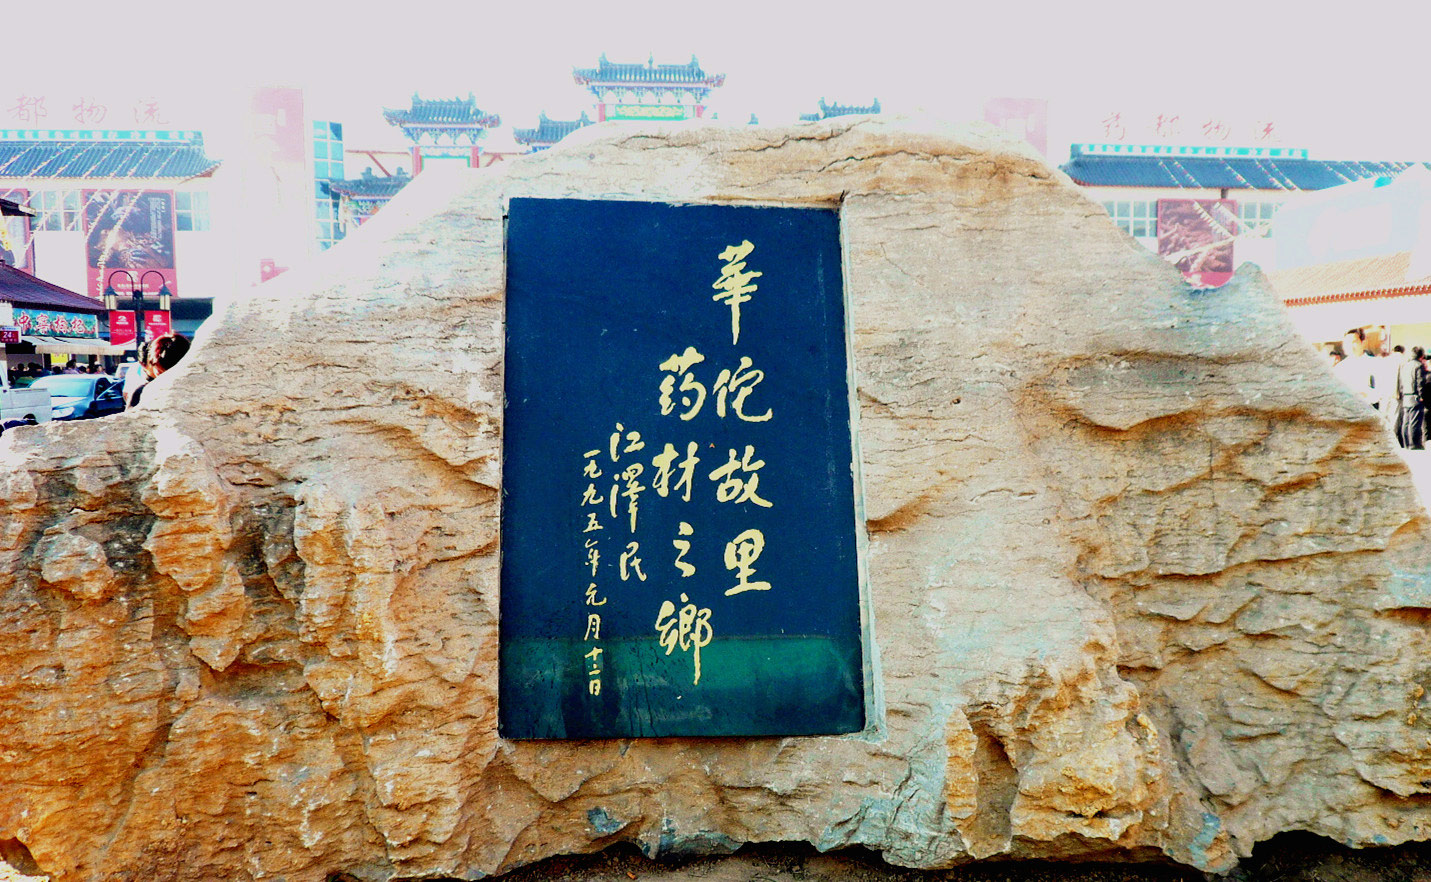 華佗故里
药材之鄉
江澤民
一九九五年元月十二日
都物流
药都物流